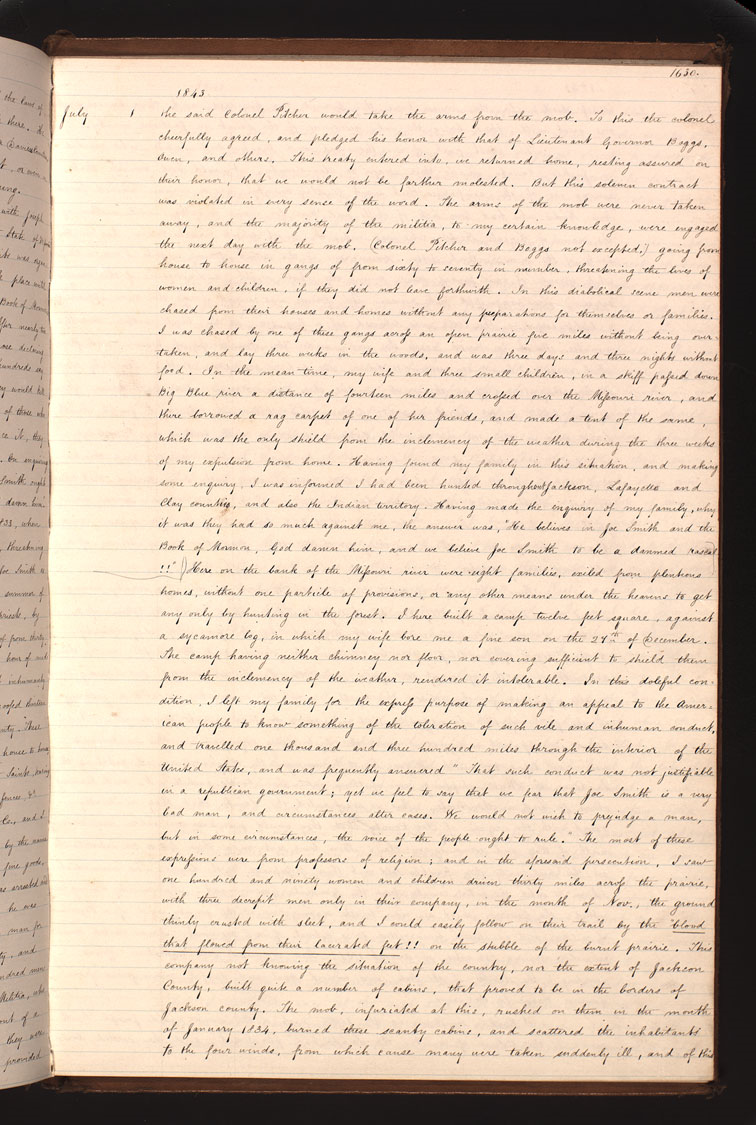 1630.
1843
July 1 the said Colonel Pitcher would take the arms from the mob. To this the colonel
cheerfully agreed, and pledged his honor with that of Lieutenant Governor Boggs,
Owen, and others. This treaty entered into, we returned home, resting assured on
their honor, that we would not be farther molested. But this solemn contract
was violated in every sense of the word. The arms of the mob were never taken
away, and the majority of the militia, to my certain knowledge, were engaged
the next day with the mob, (Colonel Pitcher and Boggs not excepted,) going from
house to house in gangs of from sixty to seventy in number, threatening the lives of
women and children, if they did not leave forthwith. In this diabolical scene men were
chased from their houses and homes without any preparations for themselves or families.
I was chased by one of these gangs across an open prairie five miles without being over-
taken, and lay three weeks in the woods, and was three days and three nights without
food. In the mean time, my wife and three small children, in a skiff passed down
Big Blue river a distance of fourteen miles and crossed over the Missouri river, and
there borrowed a rag carpet of one of her friends, and made a tent of the same,
which was the only shield from the inclemency of the weather during the three weeks
of my expulsion from home. Having found my family in this situation, and making
some enquiry, I was informed I had been hunted throughout Jackson, Lafayette and
Clay counties, and also the Indian territory. Having made the enquiry of my family, why
it was they had so much against me, the answer was, "He believes in Joe Smith and the
Book of Mormon, God damn him, and we believe Joe Smith to be a damned rascal
!!" Here on the bank of the Missouri river were eight families, exiled from plenteous
homes, without one particle of provisions, or any other means under the heavens to get
any only by hunting in the forest. I here built a camp twelve feet square, against
a sycamore log, in which my wife bore me a fine son on the 27th of December.
The camp having neither chimney nor floor, nor covering sufficient to shield them
from the inclemency of the weather, rendered it intolerable. In this doleful con-
dition, I left my family for the express purpose of making an appeal to the Amer-
ican people to know something of the toleration of such vile and inhuman conduct,
and travelled one thousand and three hundred miles through the interior of the
United States, and was frequently answered "That such conduct was not justifiable
in a republican government; yet we feel to say that we fear that Joe Smith is a very
bad man, and circumstances alter cases. We would not wish to prejudge a man,
but in some circumstances, the voice of the people ought to rule." The most of these
expressions were from professors of religion; and in the aforesaid persecution, I saw
one hundred and ninety women and children driven thirty miles across the prairie,
with three decrepit men only in their company, in the month of Nov., the ground
thinly crusted with sleet, and I could easily follow on their trail by the "blood
that flowed from their lacerated feet"!! on the stubble of the burnt prairie. This
company not knowing the situation of the country, nor the extent of Jackson
County, built quite a number of cabins, that proved to be in the borders of
Jackson county. The mob, infuriated at this, rushed on them in the month
of January 1834, burned these scanty cabins, and scattered the inhabitants
to the four winds, from which cause many were taken suddenly ill, and of this